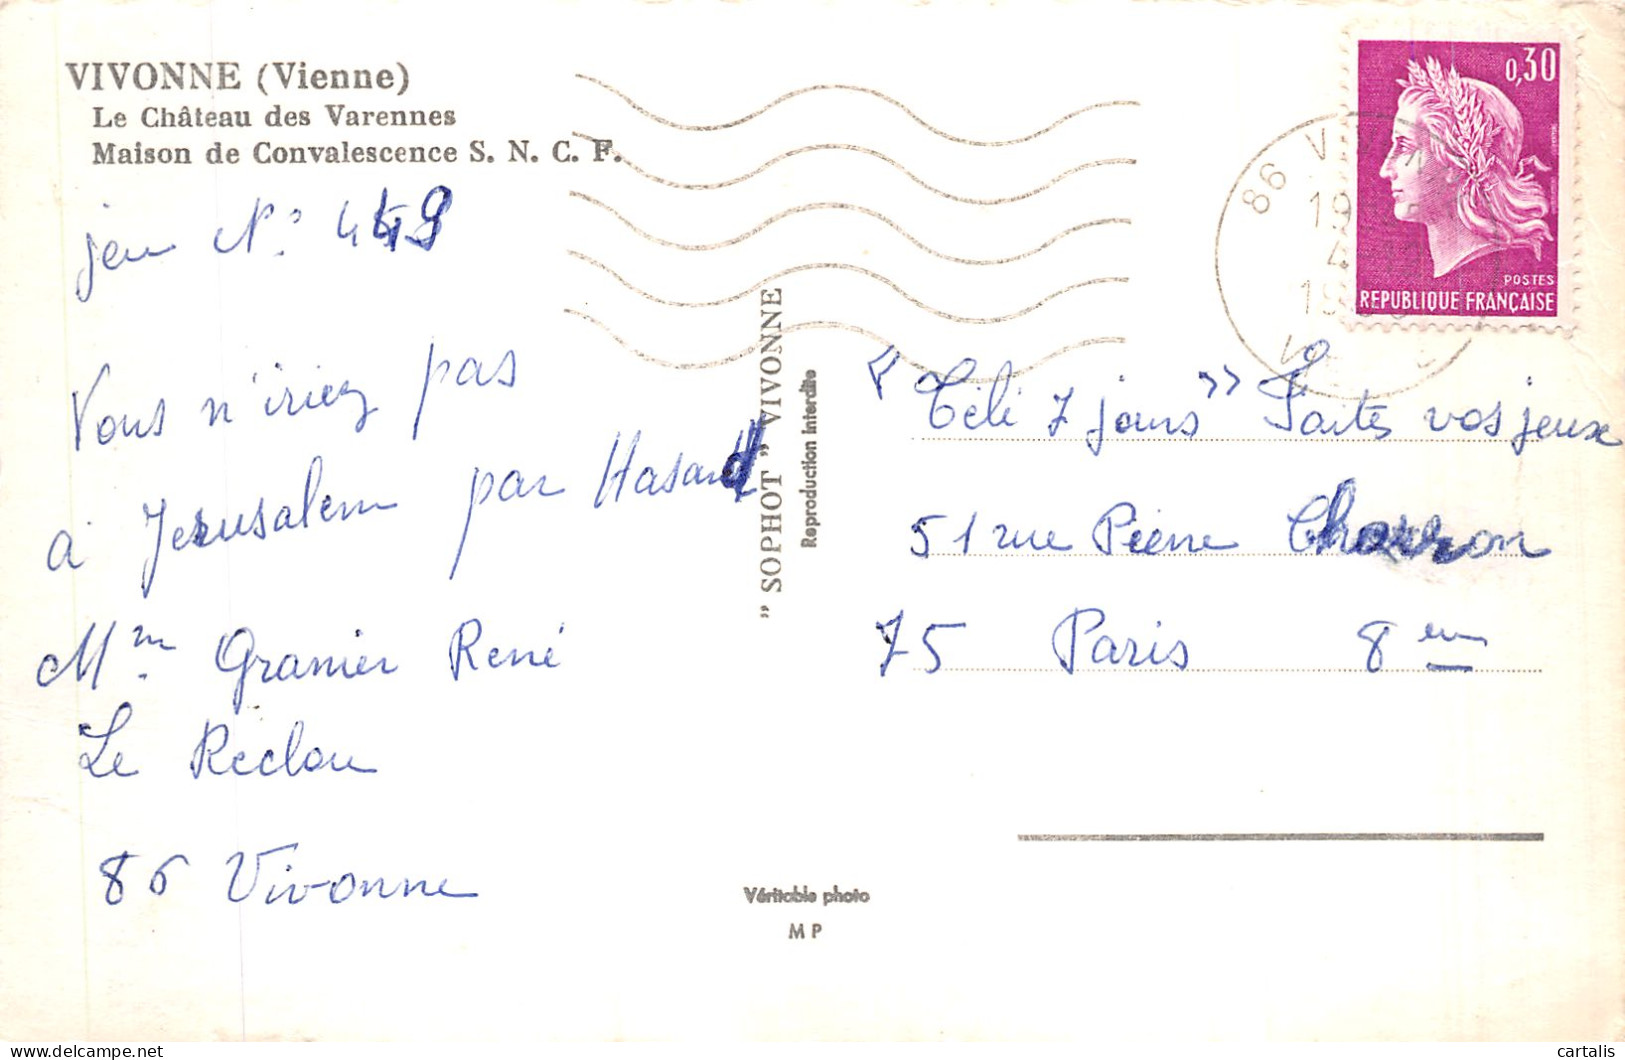 VIVONNE (Vienne)
Le Château des Varennes
Maison de Convalescence S. N. C. F.
jeu N° 449
Vous n'iriez pas
à Jerusalem par Hasard
Mm Granier René
Le Reclou
86 Vivonne
"SOPHOT" VIVONNE
Reproduction interdite
Véritable photo
MP
0,30
POSTES
REPUBLIQUE FRANÇAISE
86
« Télé 7 jours » Faites vos jeux
51 rue Pierre Charron
75 Paris 8em
delcampe.net
cartalis